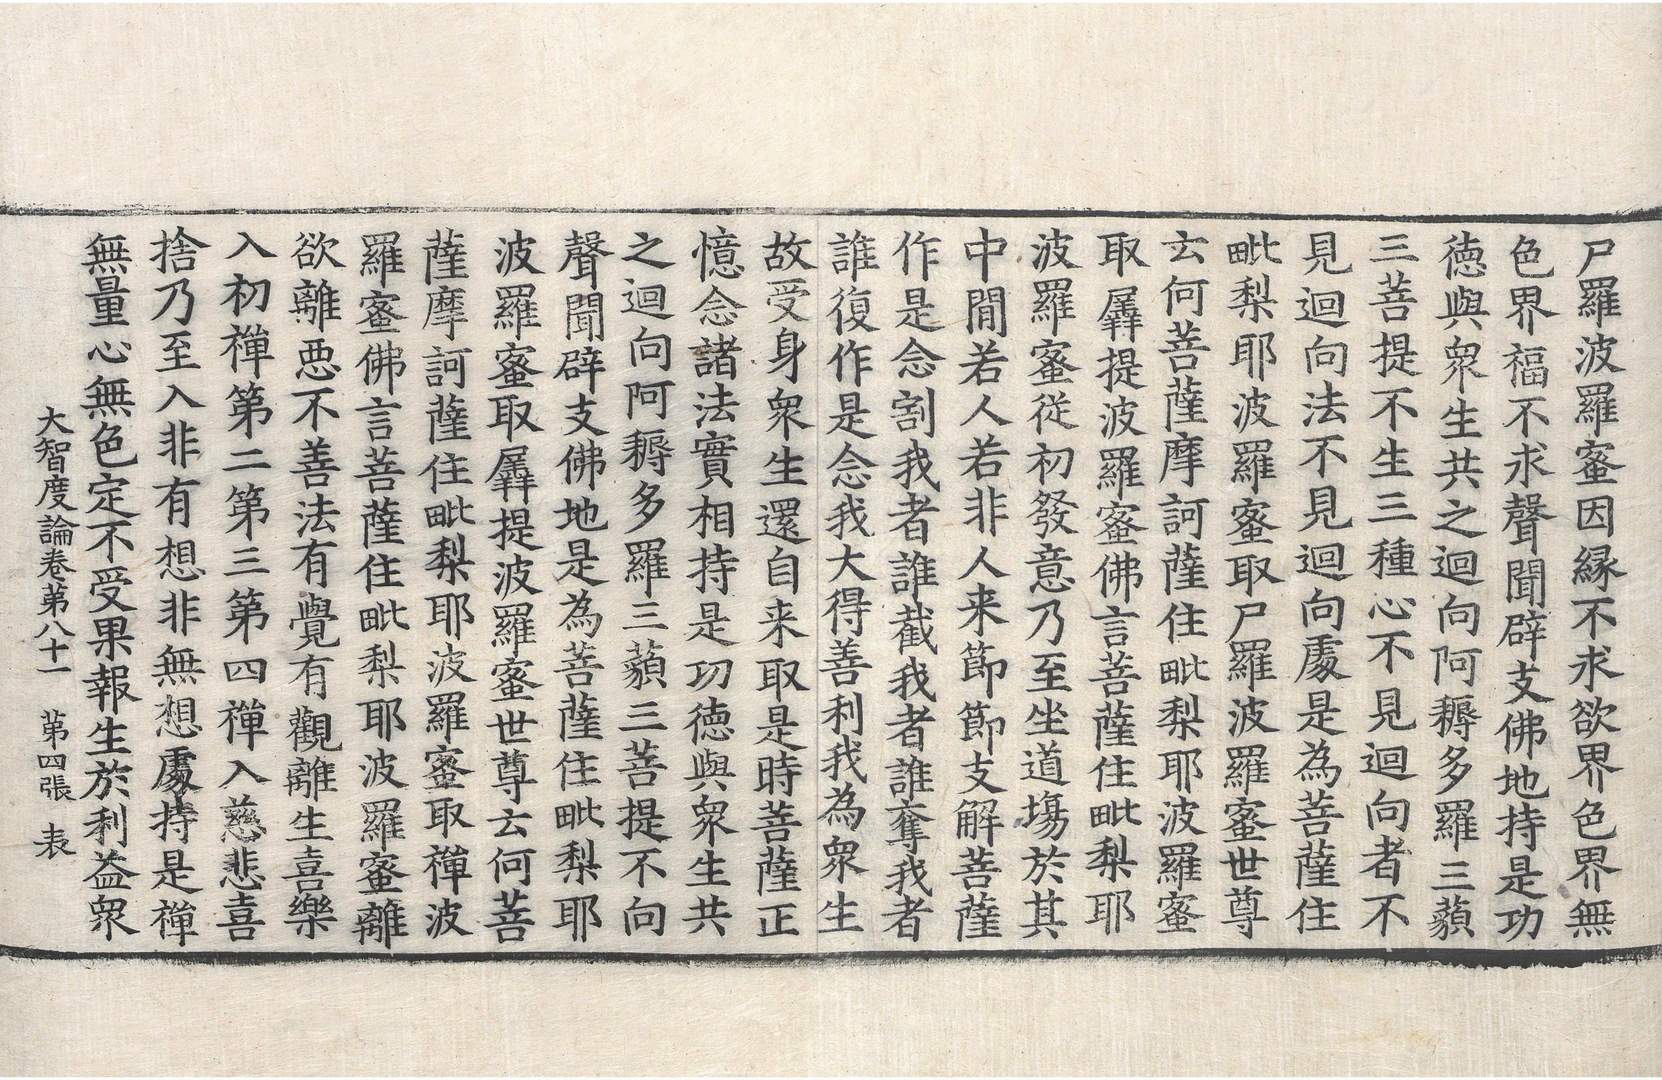 尸羅波羅蜜因緣不求欲界色界無
色界福不求聲聞辟支佛地持是功
德與衆生共之迴向阿耨多羅三藐
三菩提不生三種心不見迴向者不
見迴向法不見迴向處是為菩薩住
毗梨耶波羅蜜取尸羅波羅蜜世尊
云何菩薩摩訶薩住毗梨耶波羅蜜
取羼提波羅蜜佛言菩薩住毗梨耶
波羅蜜從初發意乃至坐道場於其
中閒若人若非人来節節支解菩薩
作是念割我者誰截我者誰奪我者
誰復作是念我大得善利我為衆生
故受身衆生還自来取是時菩薩正
憶念諸法實相持是功德與衆生共
之迴向阿耨多羅三藐三菩提不向
聲聞辟支佛地是為菩薩住毗梨耶
波羅蜜取羼提波羅蜜世尊云何菩
薩摩訶薩住毗梨耶波羅蜜取禪波
羅蜜佛言菩薩住毗梨耶波羅蜜離
欲離惡不善法有覺有觀離生喜樂
入初禪第二第三第四禪入慈悲喜
捨乃至入非有想非無想處持是禪
無量心無色定不受果報生於利益衆
大智度論卷第八十一　第四張　表